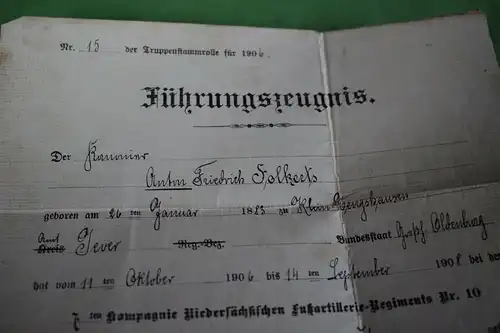 Nr. 15 der Truppenstammrolle für 1906.
Führungszeugnis.
Der Kanonier
Anton Friedrich Folkerts
geboren am 26 ten Januar 1883 zu Klein
Amt
Kreis Jever Reg.-Bez. Bundesstaat Großh. Oldenburg
hat vom 11 ten Oktober 1906 bis 14 ten September 1908 bei der
7 ten Kompagnie Niedersächsischen Fußartillerie-Regiments Nr. 10